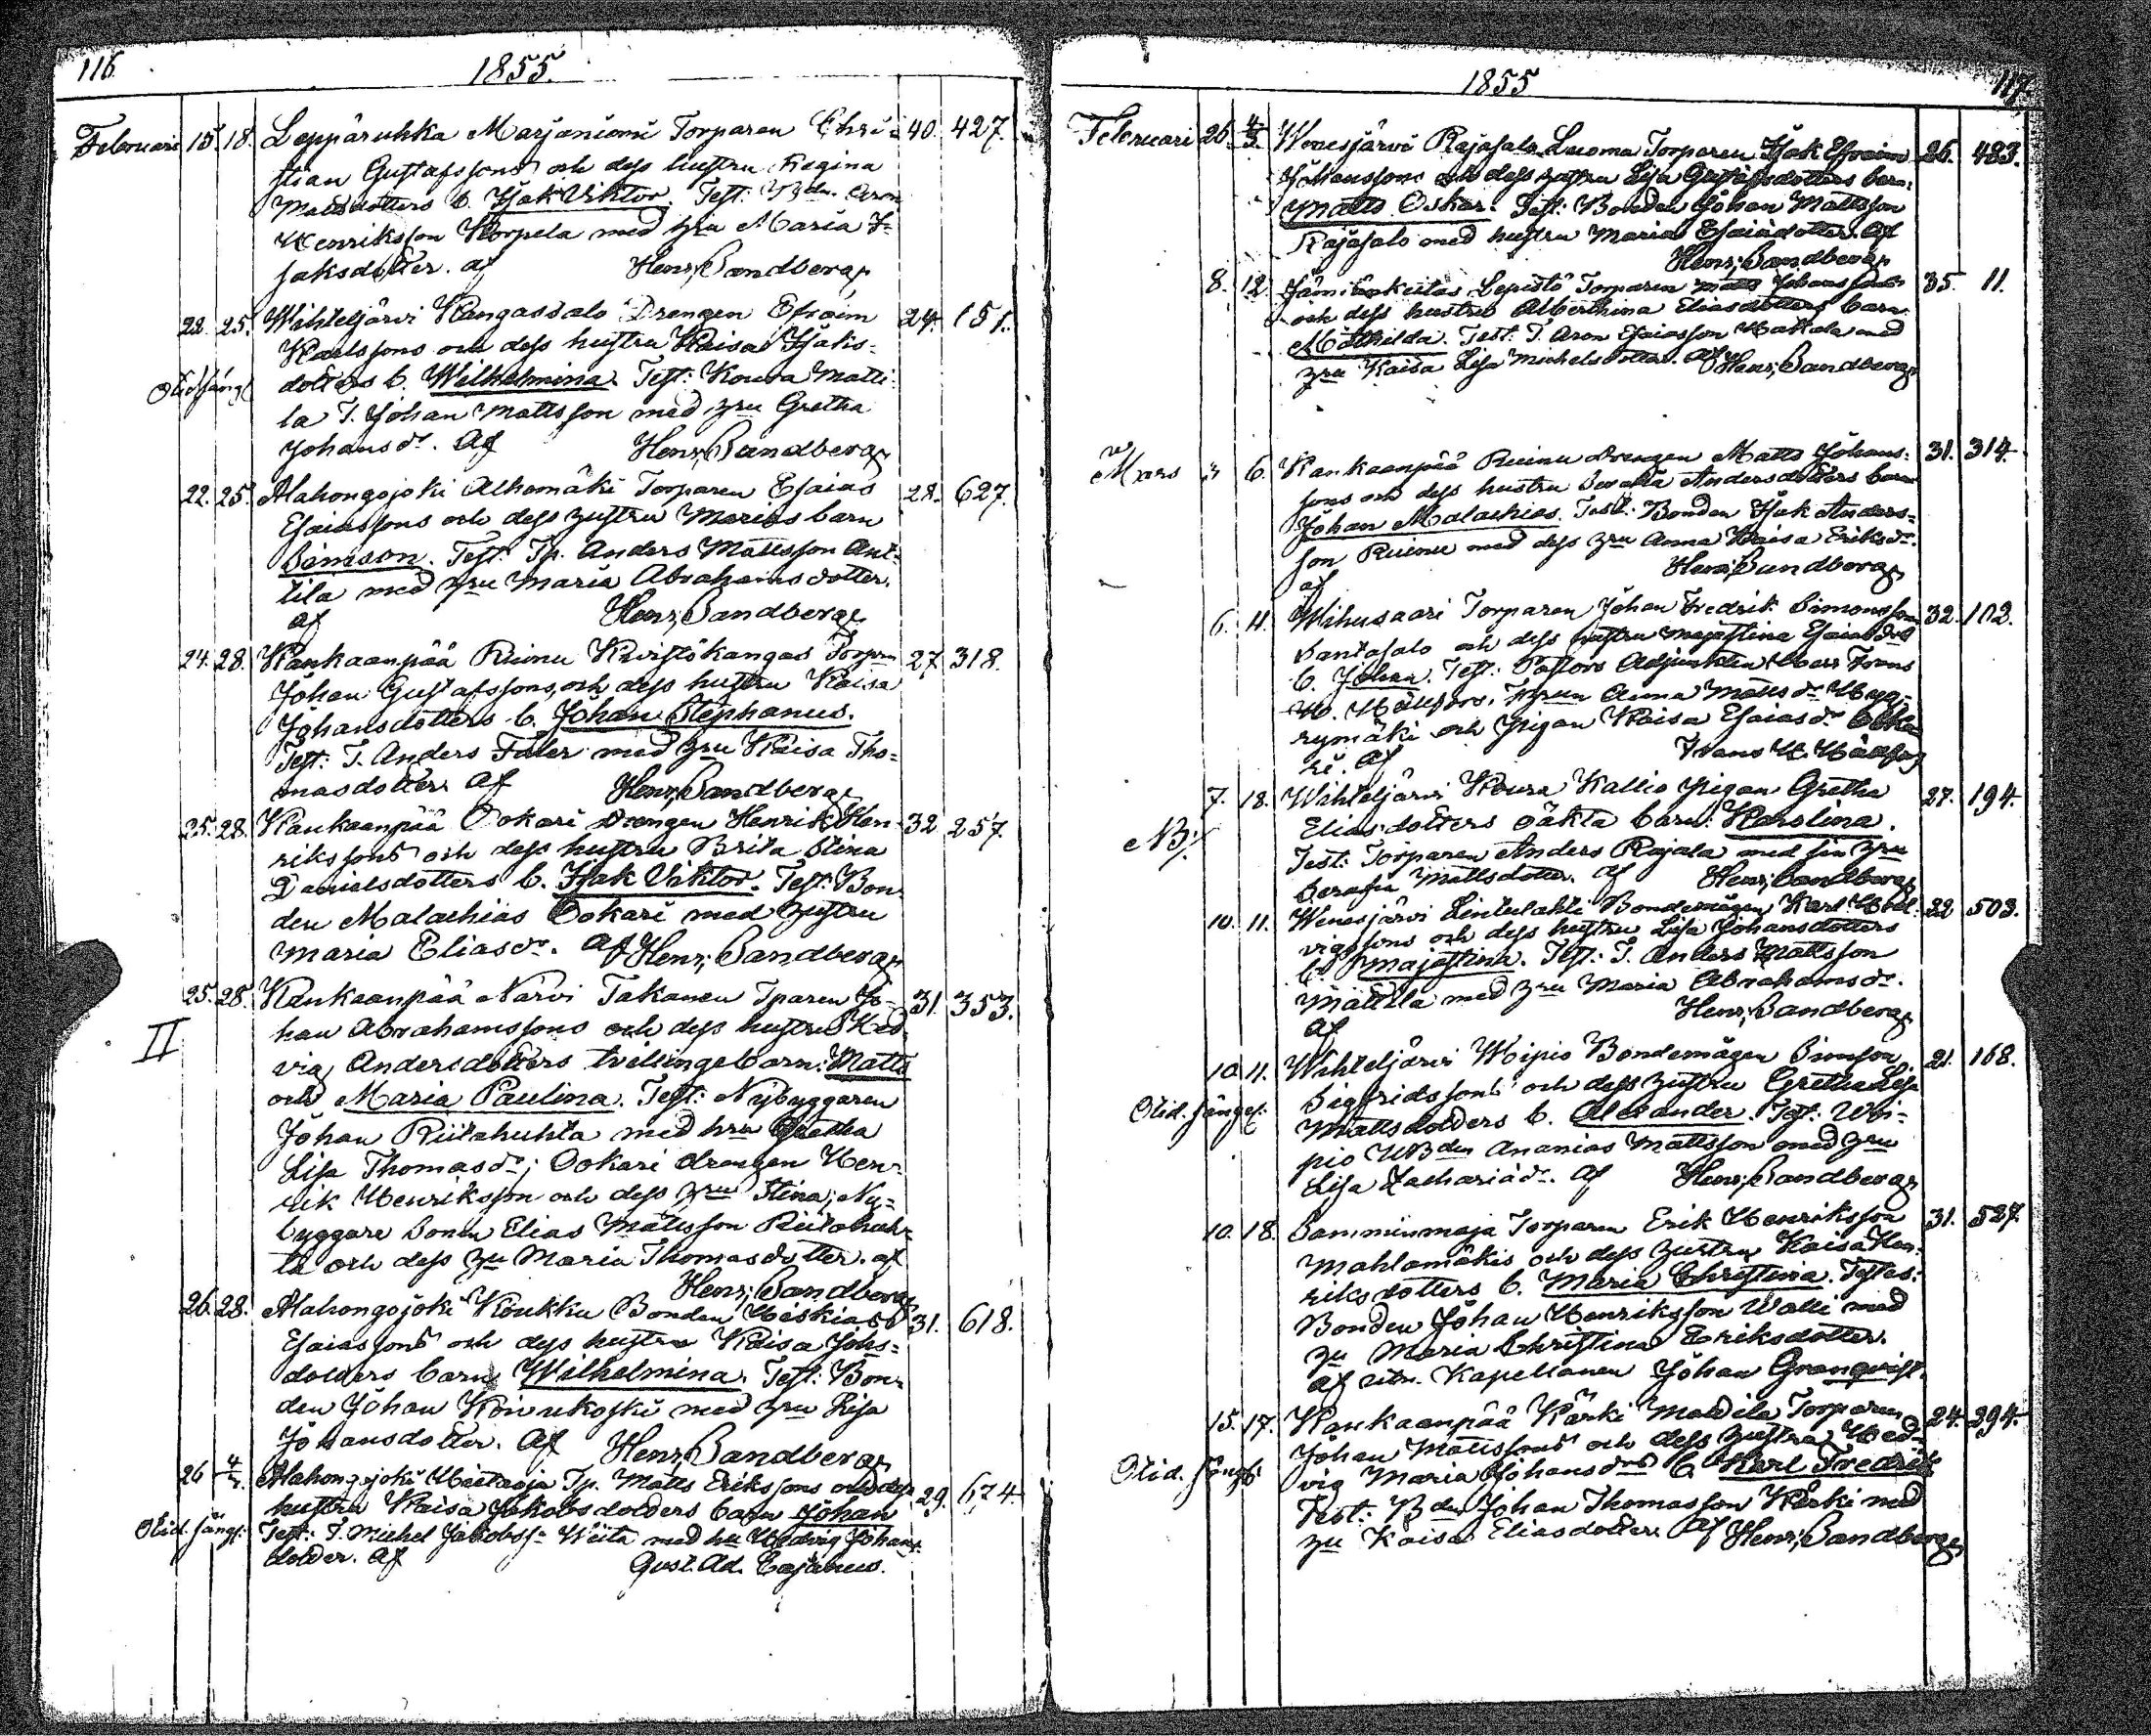 116
1855.
Februari 15. 18. Leppäruhka Marjaniemi Torparen Chri= 40. 427.
stian Gustafssons och dess hustru Regina
Mattsdotters b. Isak Viktor. Test: Bdn. Aron
Henriksson Korpela med hru Maria I=
saksdotter. af Henr; Sandberg
22. 25. Wihteljärvi Kangassalo Drengen Efraim 24. 151.
Karlssons och dess hustru Kaisa Isaks=
Oäd. sängf. dotters b. Wilhelmina. Test: Koura Matti
la T. Johan Mattsson med hru Gretha
Johansdr. af Henr; Sandberg
22. 25. Alahongojoki Alhomäki Torparen Esaias 28. 627.
Esaiassons och dess hustru Marias barn
Simson. Test: Tp. Anders Mattsson Ant=
tila med hru Maria Abrahamsdotter.
af Henr; Sandberg
24. 28. Kankaanpää Ruinu Kuvistökangas Torpn 27. 318.
Johan Gustafssons, och dess hustru Kaisa
Johansdotters b. Johan Stephanus.
Test: T. Anders Faler med hru Kaisa Tho=
masdotter. af Henr; Sandberg
25. 28. Kankaanpää Ookari Drengen Henrik Hen= 32 257.
rikssons och dess hustru Brita Stina
Danielsdotters b. Isak Viktor. Test: Bon=
den Malachias Ookari med hustru
Maria Eliasdr. af Henr; Sandberg
25. 28. Kankaanpää Närvi Takanen Tparen Jo= 31. 353.
han Abrahamssons och dess hustru Hed=
II vig Andersdotters tvillingebarn: Matts
och Maria Paulina. Test: Nybyggaren
Johan Riitahuhta med hru Gretha
Lisa Thomasdr; Ookari drengen Hen=
rik Henriksson och dess hru Stina; Ny=
byggare Sonen Elias Mattsson Riitahuh=
ta och dess hru Maria Thomasdotter. af
Henr; Sandberg
26. 28. Alahongojoki Koukku Bonden Hiskias 31. 618.
Esaiassons och dess hustru Kaisa Johs=
dotters barn Wilhelmina. Test: Bon=
den Johan Koivukoski med hru Lisa
Johansdotter. af Henr; Sandberg
26 4/3. Alahongojoki Hietaoja Tp. Matts Erikssons och dess 29. 674.
hustru Kaisa Jakobsdotters barn Johan
Oäd. sängf. Test: T. Michel Jakobss Wiita med hu Hedvig Johans
dotter. af Gust. Ad. Cajanus.
1855 117.
Februari 26 4/3. Wenesjärvi Rajasalo Luoma Torparen Isak Efraim 26. 483.
Johanssons och dess hustru Lisa Gustafsdotters barn:
Matts Oskar. Test: Bonden Johan Mattsson
Rajasalo med hustru Maria Esaiædotter. af
Henr; Sandberg
8. 12. Jämiänkeitas Lepistö Torparen Matts Johanssons 35. 11.
och dess hustru Alberthina Eliasdotters barn
Mathilda. Test: T. Aron Esaiasson Mattala med
hru Kaisa Lisa Michelsdotter. af Henr; Sandberg
Mars 3 6. Kankaanpää Ruinu drengen Matts Johans= 31. 314.
sons och dess hustru Serafia Andersdotters barn
Johan Malachias. Test: Bonden Isak Anders=
son Ruinu med dess hru Anna Kaisa Eriksdr.
af Henr; Sandberg
6. 11. Wihusaari Torparen Johan Fredrik Simonsson 32. 102.
Santasalo och dess hustru Majastina Esaiasdrs
b. Johan. Test: Pastors Adjunkten Herr Frans
H. Hällfors. Tprun Anna Mattsdr Myg=
rymäki och Pigan Kaisa Esaiasdr
af Frans H. Hällfors
7. 18. Wihteljärvi Koura Kallio Pigan Gretha 27. 194.
Eliasdotters oäkta barn: Karolina.
NB/. Test: Torparen Anders Rajala med sin hru
Serafia Mattsdotter. af Henr; Sandberg
10. 11. Wenesjärvi Lintulahti Bondemågen Karl Hed= 22 503.
vigssons och dess hustru Lisa Johansdotters
b. Majastina. Test: T. Anders Mattsson
Mattila med hru Maria Abrahamsdr.
af Henr; Sandberg
10. 11. Wihteljärvi Woipio Bondemågen Simson 21. 168.
Oäd. sängf. Sigfridssons och dess hustru Gretha Lisa
Mattsdotters b. Alexander. Test: Woi=
pio HBden Ananias Mattsson med hru
Lisa Zachariædr. af Henr; Sandberg
10. 18. Samminmaja Torparen Erik Henriksson 31. 527.
Mahlamäkis och dess hustru Kaisa Hen=
riksdotters b. Maria Christina. Testes:
Bonden Johan Henriksson Walli med
hu Maria Christina Eriksdotter.
af Kapellanen Johan Granqvist.
15. 17. Kankaanpää Kärki Mattila Torparen 24. 294.
Johan Mattssons och dess hustru Hed=
Oäd. sängf. vig Maria Johansdrs b. Karl Fredrik
Test: Bdn Johan Thomasson Kärki med
hu Kaisa Eliasdotter. af Henr; Sandberg